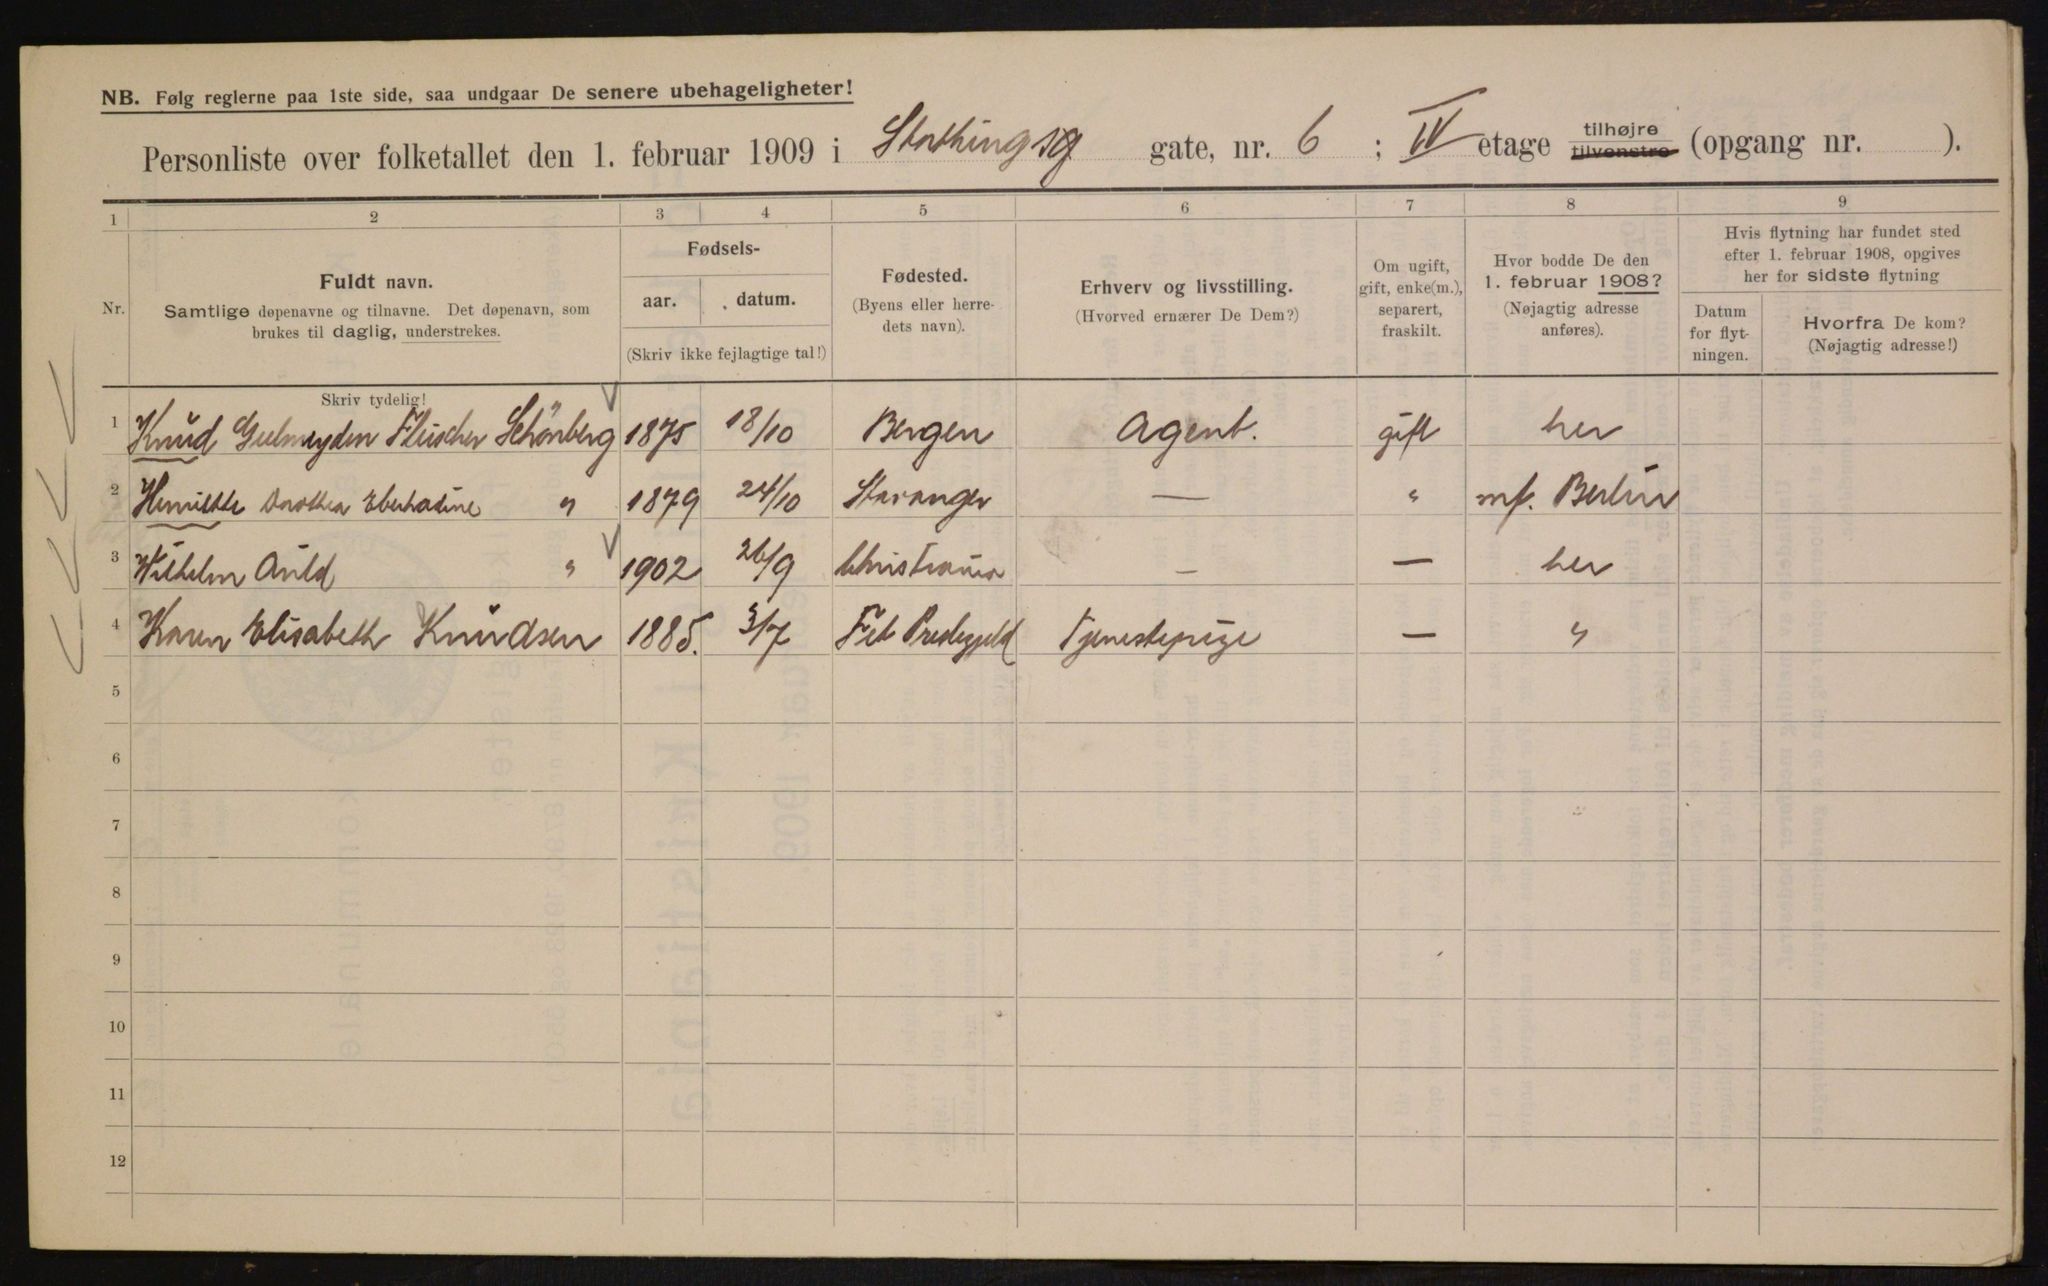 NB. Følg reglerne paa 1ste side, saa undgaar De senere ubehageligheter!
Personliste over folketallet den 1. februar 1909 i Storthingsg gate, nr. 6 ; IV etage tilhøjre tilvenstre (opgang nr. ).
1 2 3 4 5 6 7 8 9
Nr.
Fuldt navn.
Samtlige døpenavne og tilnavne. Det døpenavn, som
brukes til daglig, understrekes.
Fødsels-
aar. datum.
(Skriv ikke fejlagtige tal!)
Fødested.
(Byens eller herre-
dets navn).
Erhverv og livsstilling.
(Hvorved ernærer De Dem?)
Om ugift,
gift, enke(m.),
separert,
fraskilt.
Hvor bodde De den
1. februar 1908?
(Nøjagtig adresse
anføres).
Hvis flytning har fundet sted
efter 1. februar 1908, opgives
her for sidste flytning
Datum
for flyt-
ningen.
Hvorfra De kom?
(Nøjagtig adresse!)
Skriv tydelig!
1 Knud Gulmeyden Fleischer Schönberg 1875 18/10 Bergen Agent. gift her
2 Henriette Dorothea Eberhadine " 1879 24/10 Stavanger — " mf. Berlin
3 Wilhelm Auld " 1902 26/9 Christiania — — her
4 Karen Elisabeth Knudsen 1885. 3/7 Fet Prestegjeld Tjenestepige — "
5
6
7
8
9
10
11
12